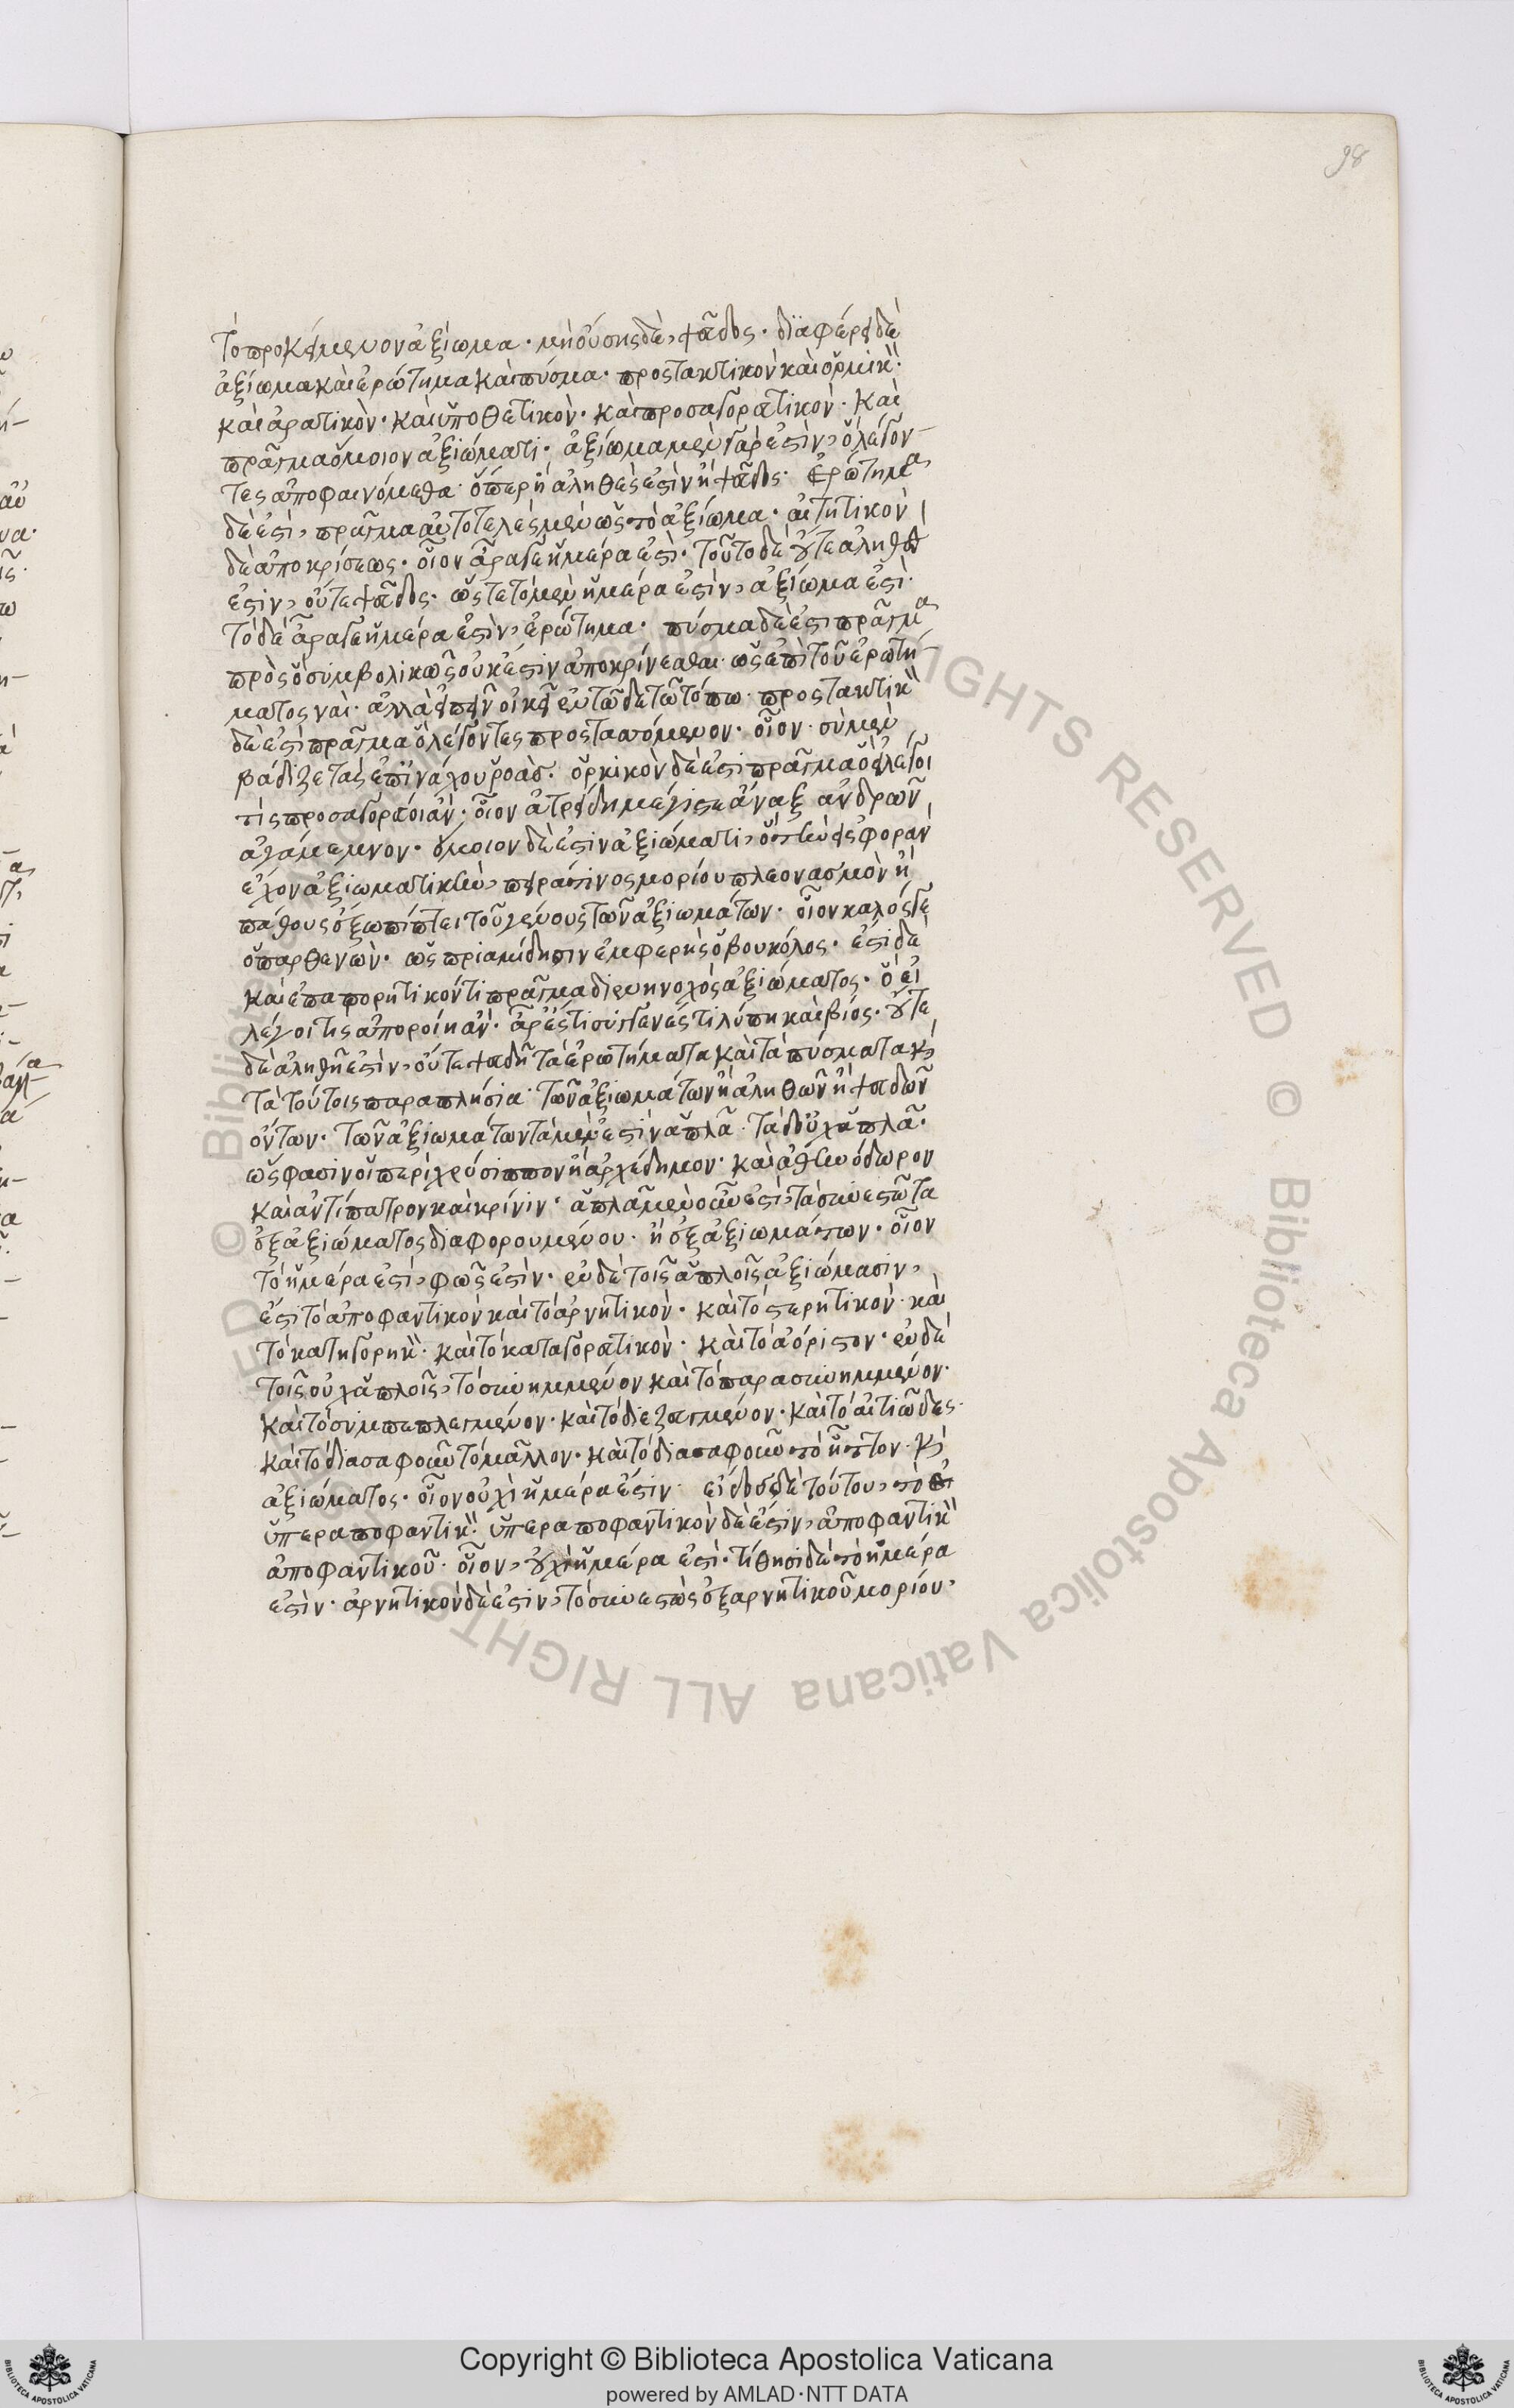 98
τὸ προκείμενον ἀξίωμα· μὴ οὔσης δὲ, ψεῦδος· διαφέρει δὲ
ἀξίωμα καὶ ἐρώτημα καὶ πύσμα· προστακτικὸν καὶ ὁρμικὸν·
καὶ ἀρατικὸν· καὶ ὑποθετικὸν· καὶ προσαγορατικὸν· καὶ
πρᾶγμα ὅμοιον ἀξιώματι· ἀξίωμα μὲν γάρ ἐστὶν, ὃ λέγον-
τες ἀποφαινόμεθα· ὅπερ ἢ ἀληθὲς ἐστὶν ἢ ψεῦδος· ἐρώτημα
δὲ ἐστὶ, πρᾶγμα αὐτοτελὲς μὲν ὡς τὸ ἀξίωμα· αἰτητικὸν
δὲ ἀποκρίσεως· οἷον ἆρά γε ἡμέρα ἐστὶ· τοῦτο δὲ οὔτε ἀληθὲς
ἐστιν, οὔτε ψεῦδος· ὥστε τὸ μὲν ἡμέρα ἐστὶν, ἀξίωμα ἐστὶ·
τὸ δὲ ἆρά γε ἡμέρα ἐστὶν, ἐρώτημα· πύσμα δὲ ἐστι πρᾶγμα
πρὸς ὃ συμβολικῶς οὐκ ἔστιν ἀποκρίνεσθαι· ὡς ἐπὶ τοῦ ἐρωτή-
ματος ναί· ἀλλὰ εἰπεῖν οἰκεῖ ἐν τῶδε τῶ τόπω· προστακτικὸν
δὲ ἐστὶ πρᾶγμα ὃ λέγοντες προστασσόμενον· οἷον· σὺ μὲν
βάδιζε τὰς ἐπὶ ἰνάχου ῥοάς· ὁρκικὸν δὲ ἐστι πρᾶγμα ὃ εἰ λέγοι
τίς προσαγορεύοι ἂν· οἷον ἀτρείδη μέγιστε ἄναξ ἀνδρῶν
ἀγάμεμνον· ὅμοιον δὲ ἐστιν ἀξιώματι, ὃ τὴν ἐκφορὰν
ἔχον ἀξιωματικὴν, παρά τινος μορίου πλεονασμὸν ἢ
πάθους ἔξω πίπτει τοῦ γένους τῶν ἀξιωμάτων· οἷον καλός γε
ὁ παρθενὼν· ὡς πριαμίδησιν ἐμφερὴς ὁ βουκόλος· ἔστι δὲ
καὶ ἐπαπορητικόν τι πρᾶγμα διενηνοχὸς ἀξιώματος· ὃ εἰ
λέγοι τις ἀποροίη ἂν· ἆρ' ἔστι συγγενές τι λύπη καὶ βίος· οὔτε
δὲ ἀληθῆ ἐστὶν, οὔτε ψευδῆ τὰ ἐρωτήματα καὶ τὰ πύσματα καὶ
τὰ τούτοις παραπλήσια· τῶν ἀξιωμάτων ἢ ἀληθῶν ἢ ψευδῶν
ὄντων· τῶν ἀξιωμάτων τὰ μὲν ἐστὶν ἁπλᾶ· τὰ δ' οὐχ ἁπλᾶ·
ὥς φασιν οἱ περὶ χρύσιππον ἢ ἀρχέδημον· καὶ ἀθηνόδωρον
καὶ ἀντίπατρον καὶ κρίνιν· ἁπλᾶ μὲν οὖν ἐστὶ, τὰ συνεστῶτα
ἐξ ἀξιώματος διαφορουμένου· ἢ ἐξ ἀξιωμάτων· οἷον
τὸ ἡμέρα ἐστὶ, φῶς ἐστὶν· ἐν δὲ τοῖς ἁπλοῖς ἀξιώμασιν,
ἐστὶ τὸ ἀποφαντικὸν καὶ τὸ ἀρνητικὸν· καὶ τὸ στερητικὸν· καὶ
τὸ κατηγορικὸν· καὶ τὸ καταγορατικὸν· καὶ τὸ ἀόριστον· ἐν δὲ
τοῖς οὐχ ἁπλοῖς, τὸ συνημμένον καὶ τὸ παρασυνημμένον·
καὶ τὸ συμπεπλεγμένον· καὶ τὸ διεζευγμένον· καὶ τὸ αἰτιῶδες·
καὶ τὸ διασαφοῦν τὸ μᾶλλον· καὶ τὸ διασαφοῦν τὸ ἧττον· καὶ
ἀξιώματος· οἷον οὐχὶ ἡμέρα ἐστιν· εἶδος δὲ τούτου, τὸ
ὑπεραποφαντικὸν· ὑπεραποφαντικὸν δὲ ἐστιν, ἀποφαντικὸν
ἀποφαντικοῦ· οἷον, οὐχὶ ἡμέρα ἐστὶ· τίθησι δὲ τὸ ἡμέρα
ἐστὶν· ἀρνητικὸν δὲ ἐστιν, τὸ συνεστὼς ἐξ ἀρνητικοῦ μορίου,
Copyright © Biblioteca Apostolica Vaticana
powered by AMLAD·NTT DATA
© Biblioteca Apostolica Vaticana ALL RIGHTS RESERVED